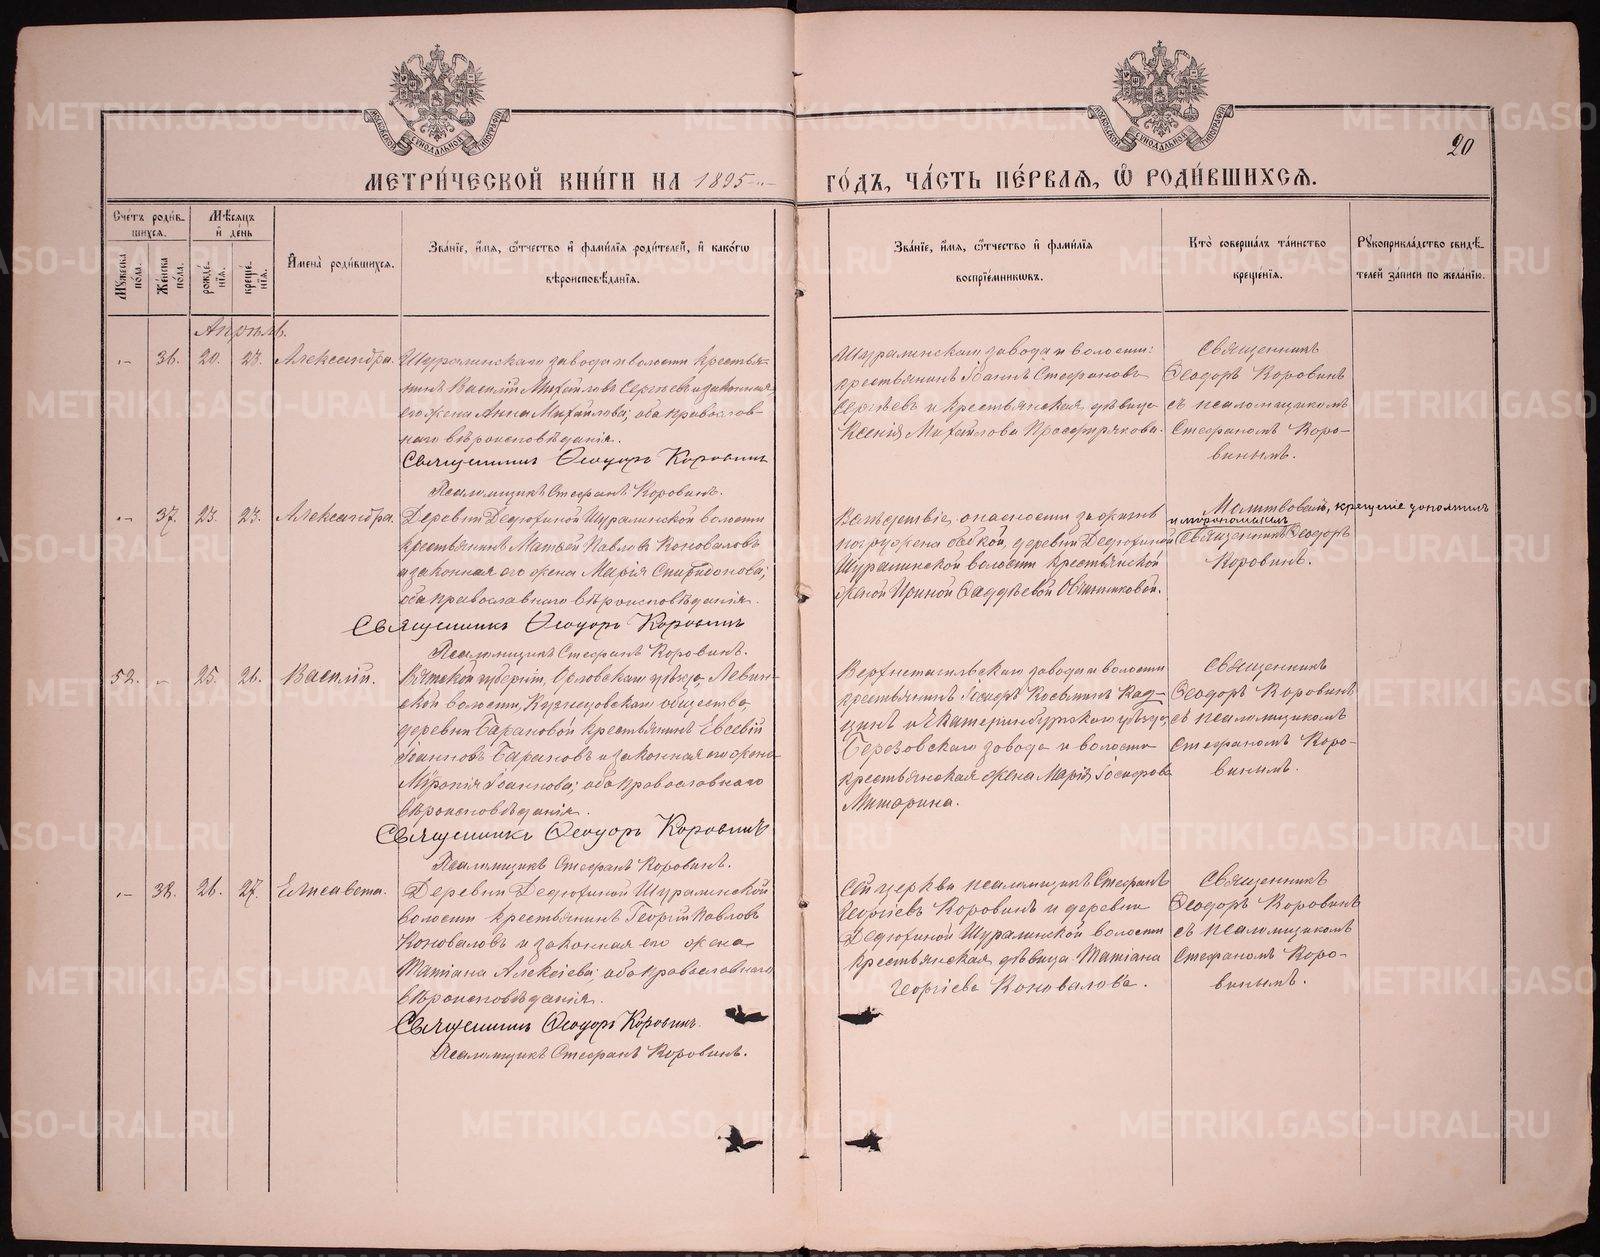 МОСКОВСКОЙ СѴНОДАЛЬНОЙ ТИПОГРАФІИ
МОСКОВСКОЙ СѴНОДАЛЬНОЙ ТИПОГРАФІИ
20
МЕТРИ́ЧЕСКОЙ КНИ́ГИ НА 1895 ГО́ДЪ, ЧА́СТЬ ПЕ́РВАЯ, Ѡ РОДИ́ВШИХСЯ.
Сче́тъ роди́вшихся.
Мѣ́сяцъ и де́нь
Му́жеска по́ла.
Же́нска по́ла.
рожде́нія.
креще́нія.
Имена̀ роди́вшихся.
Зва́ніе, и́мя, ѻ́тчество и фами́лія роди́телей, и како́гѡ вѣроисповѣ́данія.
Зва́ніе, и́мя, ѻ́тчество и фами́лія воспріе́мникѡвъ.
Кто̀ соверша́лъ та́инство креще́нія.
Рукоприкла́дство свидѣ́телей за́писи по жела́нію.
Апрѣль.
— 36. 20. 23. Александра.
Шуралинскаго завода и волости крестья-
нинъ Василій Михайловъ Сергѣевъ и законная
его жена Анна Михайлова; оба православ-
наго вѣроисповѣданія.
Священникъ Ѳеодоръ Коровинъ
Псаломщикъ Стефанъ Коровинъ.
Шуралинскаго завода и волости:
крестьянинъ Іоаннъ Стефановъ
Сергѣевъ и крестьянская дѣвица
Ксенія Михайлова Просфирякова.
Священникъ
Ѳеодоръ Коровинъ
съ псаломщикомъ
Стефаномъ Коро-
винымъ.
— 37. 23. 23. Александра.
Деревни Дедюхиной Шуралинской волости
крестьянинъ Матѳей Павловъ Коноваловъ
и законная его жена Марія Спиридонова;
оба православнаго вѣроисповѣданія.
Священникъ Ѳеодоръ Коровинъ
Псаломщикъ Стефанъ Коровинъ.
Вслѣдствіе опасности за жизнь
погружена бабкой, деревни Дедюхиной
Шуралинской волости крестьянской
женой Ириной Ѳаддѣевой Овчинниковой.
Молитвовалъ, крещеніе дополнилъ
и мропомазалъ
Священникъ Ѳеодоръ
Коровинъ.
52. — 25. 26. Василій.
Вятской губерніи, Орловскаго уѣзда, Левин-
ской волости, Кузнецовскаго общества,
деревни Барановой крестьянинъ Евсевій
Іоанновъ Барановъ и законная его жена
Мѵропія Іоаннова; оба православнаго
вѣроисповѣданія.
Священникъ Ѳеодоръ Коровинъ
Псаломщикъ Стефанъ Коровинъ.
Верхнетагильскаго завода и волости
крестьянинъ Косьминъ
и Екатеринбургскаго уѣзда,
Березовскаго завода и волости
крестьянская жена Марія Іосифова
Миторина.
Священникъ
Ѳеодоръ Коровинъ
съ псаломщикомъ
Стефаномъ Коро-
винымъ.
— 38. 26. 27. Елисавета.
Деревни Дедюхиной Шуралинской
волости крестьянинъ Георгій Павловъ
Коноваловъ и законная его жена
Татіана Алексіева; оба православнаго
вѣроисповѣданія.
Священникъ Ѳеодоръ Коровинъ.
Псаломщикъ Стефанъ Коровинъ.
Сей церкви псаломщикъ Стефанъ
Георгіевъ Коровинъ и деревни
Дедюхиной Шуралинской волости
крестьянская дѣвица Татіана
Георгіева Коновалова.
Священникъ
Ѳеодоръ Коровинъ
съ псаломщикомъ
Стефаномъ Коро-
винымъ.
METRIKI.GASO-URAL.RU